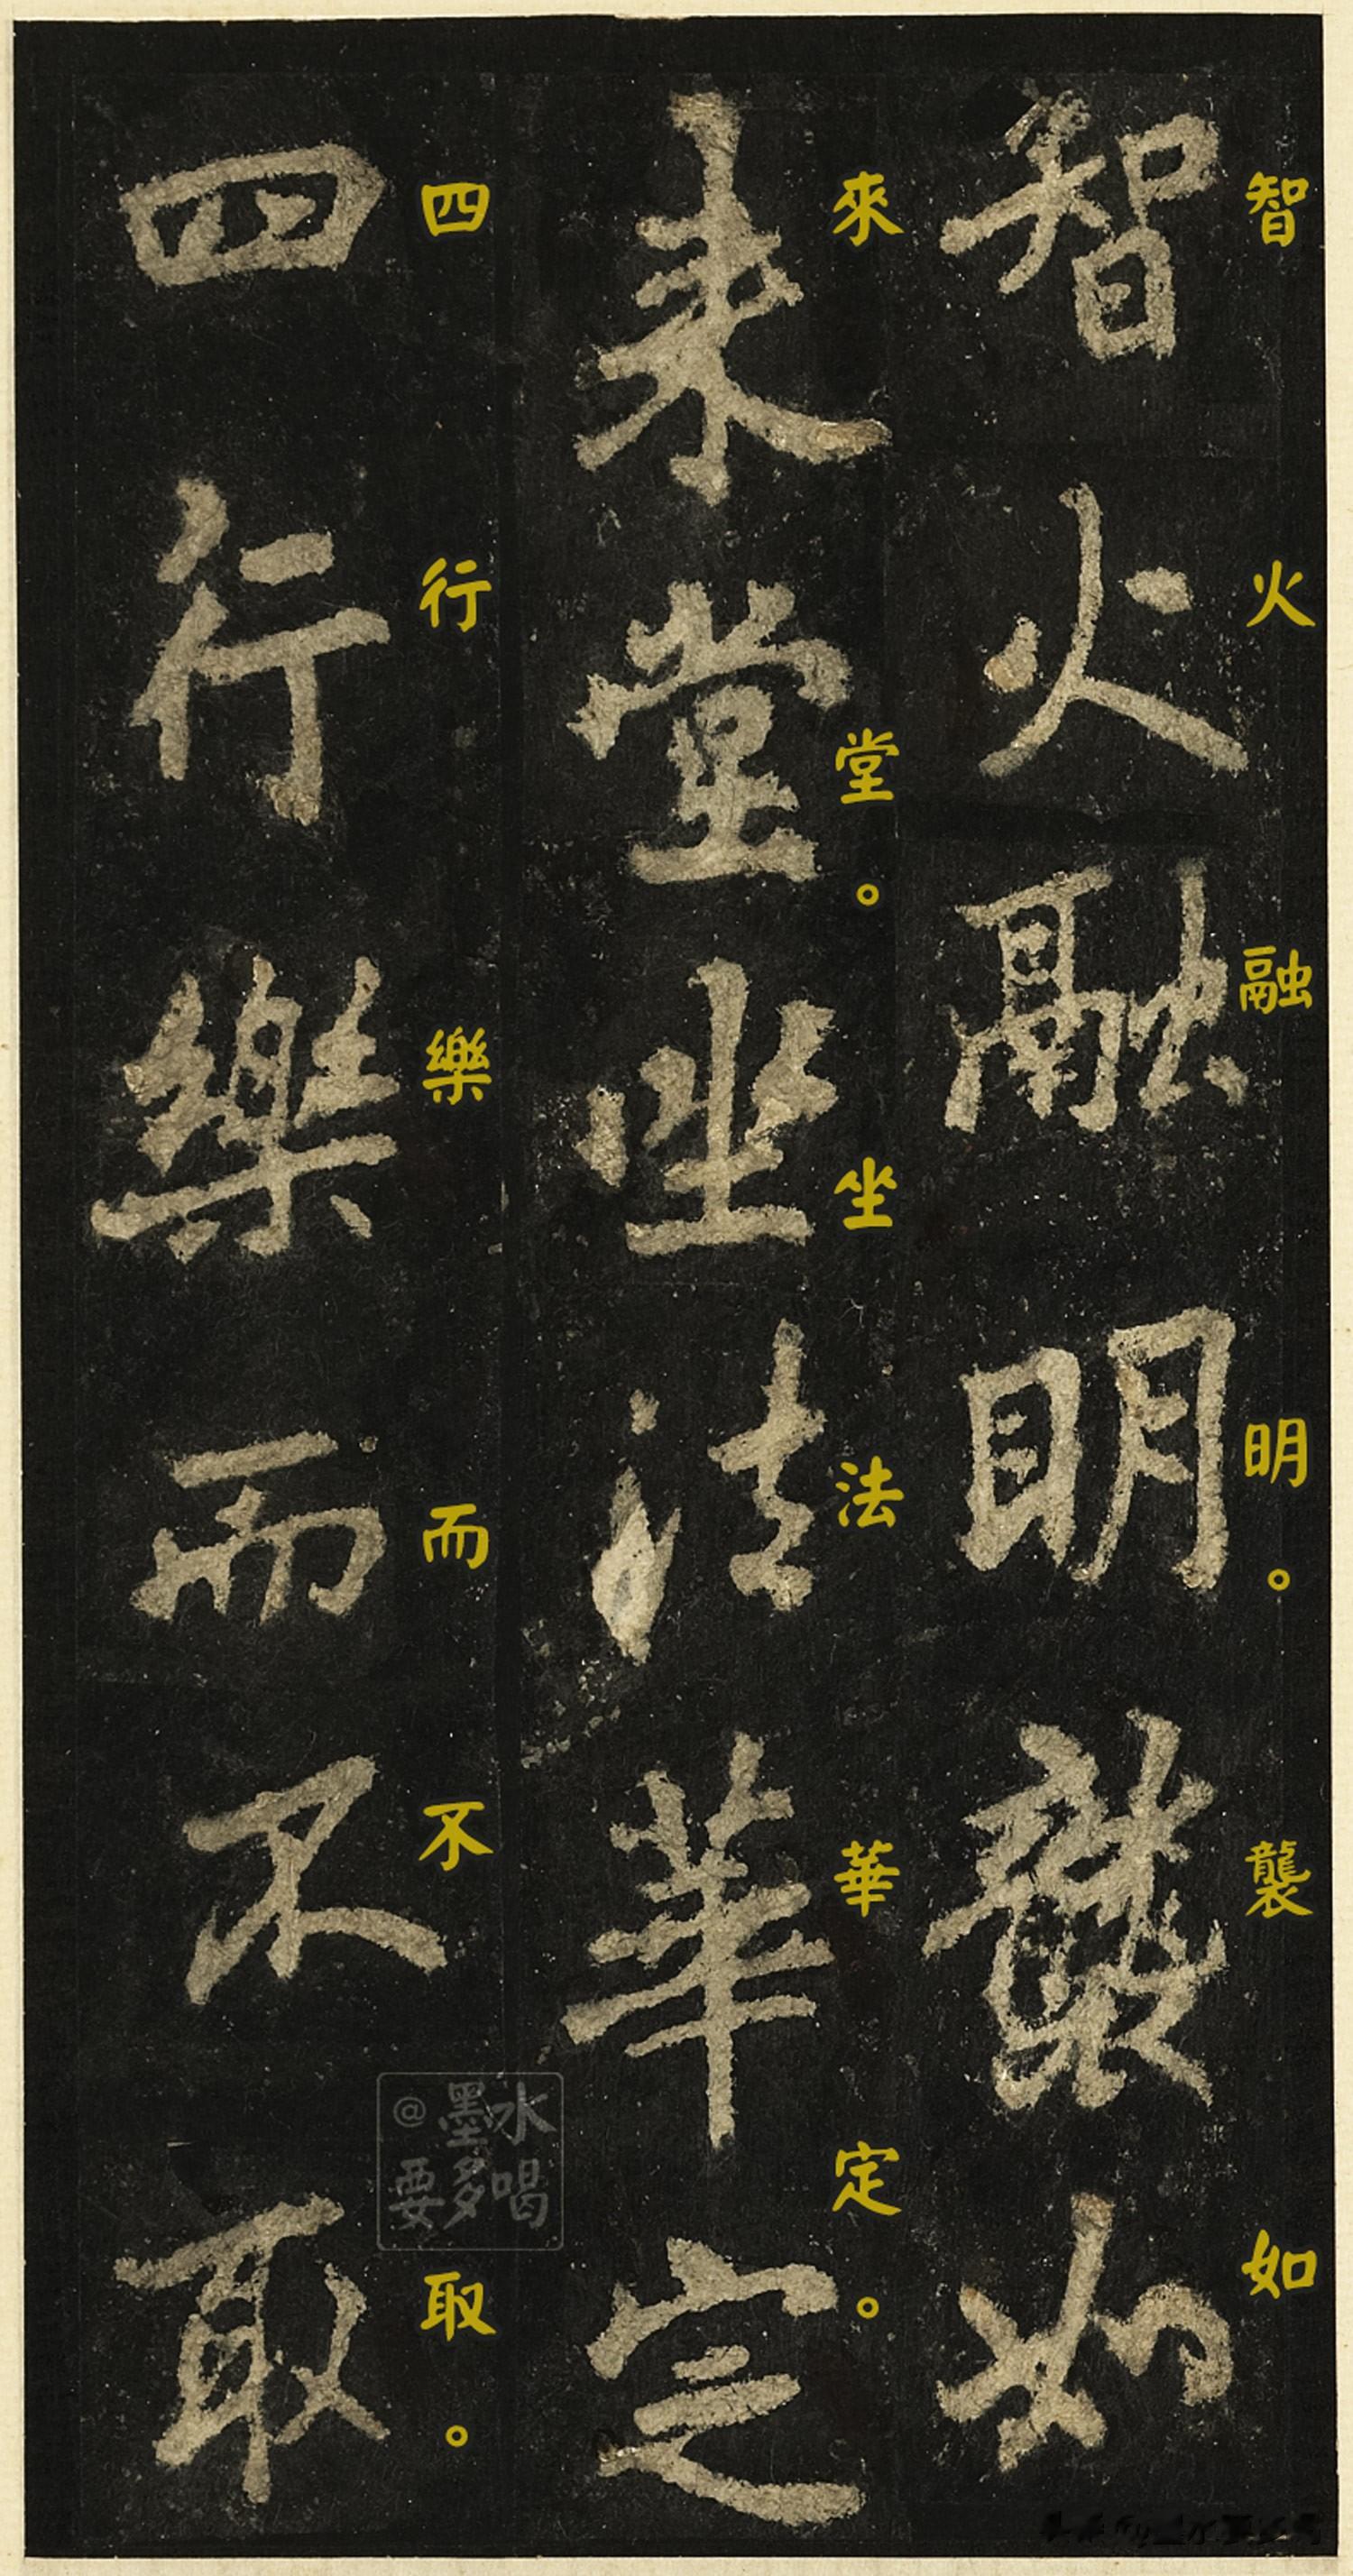 智火融明。襲如
來堂。坐法華定。
四行樂而不取。
智火融明襲如
來堂坐法華定
四行樂而不取
@墨水
要多喝